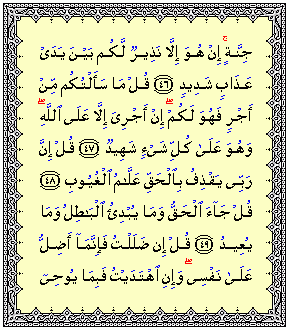 جِنَّةٍ ۚ إِنْ هُوَ إِلَّا نَذِيرٌ لَّكُم بَيْنَ يَدَىْ
عَذَابٍ شَدِيدٍ ﴿٤٦﴾ قُلْ مَا سَأَلْتُكُم مِّنْ
أَجْرٍ فَهُوَ لَكُمْ ۖ إِنْ أَجْرِىَ إِلَّا عَلَى ٱللَّهِ ۖ
وَهُوَ عَلَىٰ كُلِّ شَىْءٍ شَهِيدٌ ﴿٤٧﴾ قُلْ إِنَّ
رَبِّى يَقْذِفُ بِٱلْحَقِّ عَلَّٰمُ ٱلْغُيُوبِ ﴿٤٨﴾
قُلْ جَآءَ ٱلْحَقُّ وَمَا يُبْدِئُ ٱلْبَٰطِلُ وَمَا
يُعِيدُ ﴿٤٩﴾ قُلْ إِن ضَلَلْتُ فَإِنَّمَآ أَضِلُّ
عَلَىٰ نَفْسِى ۖ وَإِنِ ٱهْتَدَيْتُ فَبِمَا يُوحِىٓ